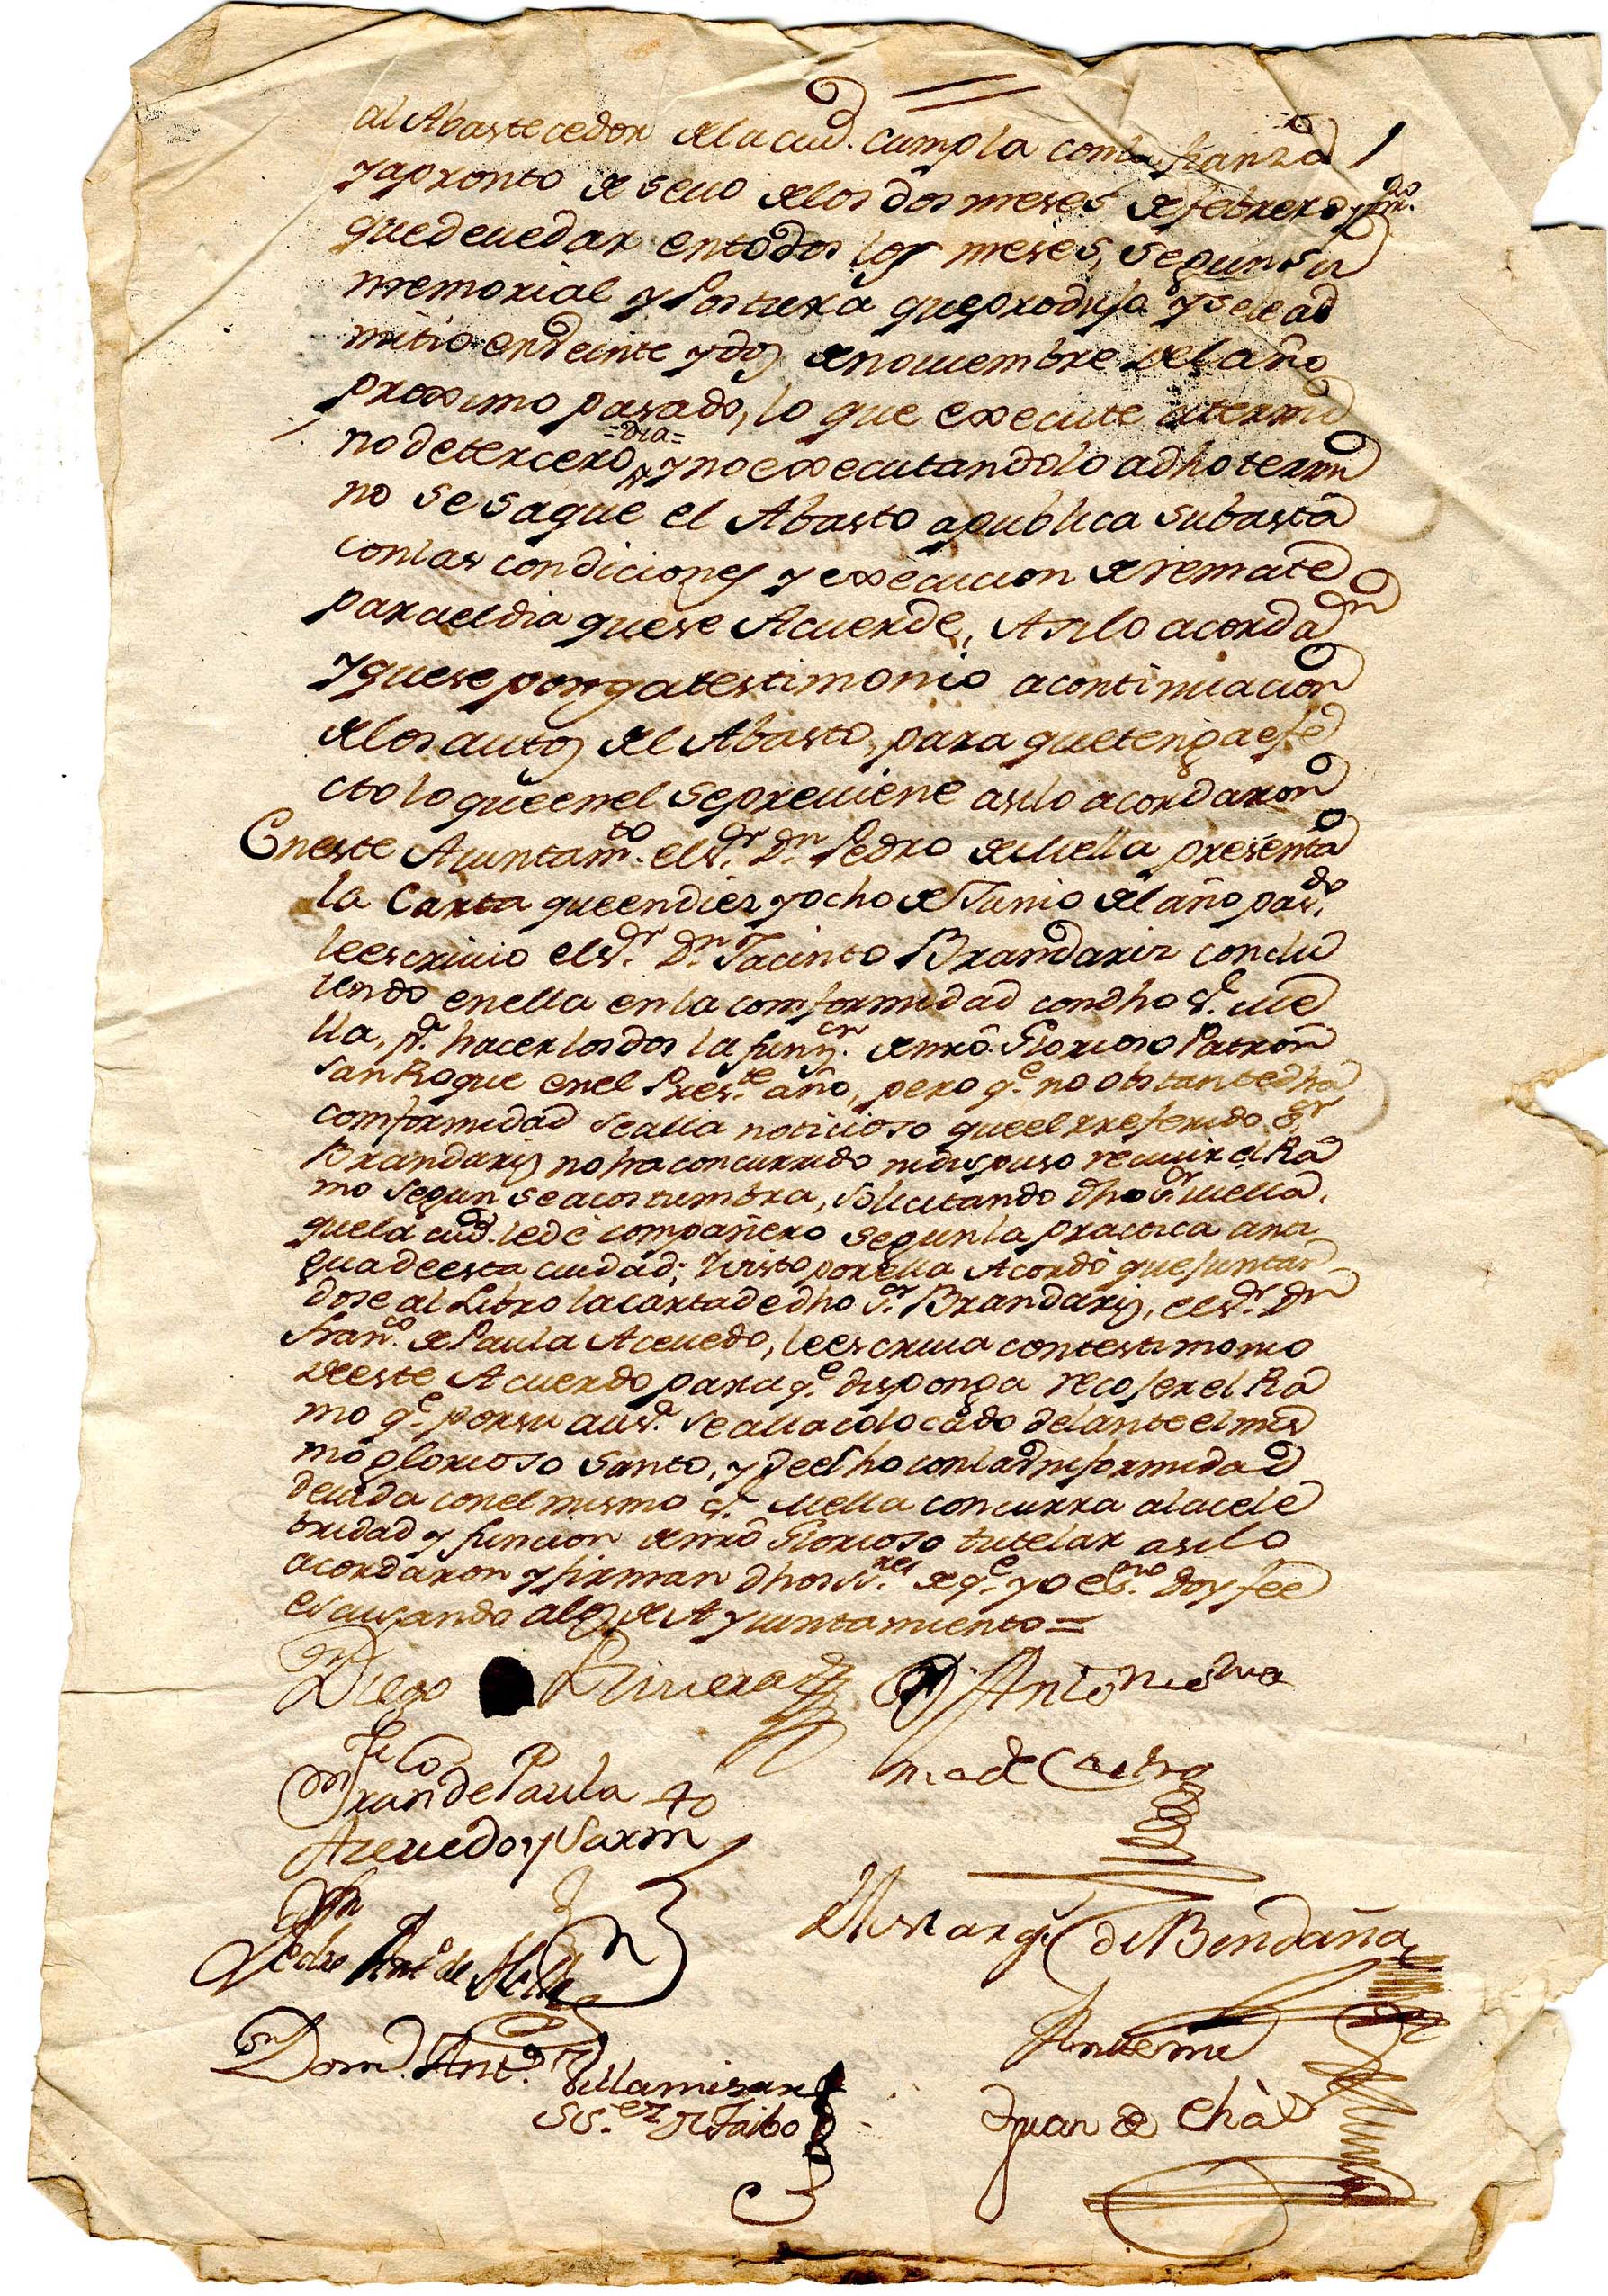 al Abastecedor dela ciud. cumpla conla fianza
yapronto de sevo delos dos meses de febrero y
quedeuedar entodos los meses, segun su
memorial y Postura queprodujo ysele ad
mitio endeinte ydos denouiembre del año
proximo pasado, lo que execute atermi
=dia=
nodetercero, ynoexecutandolo adho termi
no sesaque el Abasto apublica subasta
conlas condiciones y execucion de remate
paraeldia quese Acuerde, Asilo acordan
yquese pongatestimonio acontinuacion
delos autos del Abasto, para quetenga efe
cto loqueenel sepreuiene asilo acordaron
Eneste Aiuntam.to elS.r D.n Pedro de Mella presenta
la Carta queendiez yocho de Junio del año pas.do
leescriuio elS.r D.n Jacinto Brandariz conclu
iendo enella enla comformidad condho S.r Me
lla, p.a hacerlosdos la funz.on denrô Glorioso Patron
San Roque enel Pres.te año, pero q.e no obstantedha
comformidad sealla noticioso queelrreferido S.r
Brandariz nohaconcurrido nidispuso reciuir el Ra
mo segun seacostumbra, solicitando dho S.r Mella,
quela ciud. lede compañero segunla practica anti
guadeesta ciudad; Yvisto porella Acordô quejuntan
dose al Libro lacartadedho S.r Brandariz, elS.r D.n
Fran.co de Paula Acevedo, leescriua contestimonio
deeste Acuerdo paraq.e disponga recojer el Ra
mo q.e porsu aus.a seallacolocado delante el mis
mo glorioso Santo, y deelho conladhiformidad
deuida conelmismo S.r Mella concurra alacele
bridad y funcion denrô Glorioso tutelar asilo
acordaron yfirman dhosS.res deq.e yo es.no doy fee
escusando alos de Ayuntamiento=
Diego Riuera
D.n Antonio Ma
ria de Castro
D.n Fran.co de Paula
Azeuedo y Sarm.to
D.n
Pedro Ant.o de Mella
El Marq.s de Bendaña
D.n Dom.o Ant.o Villamisar
Antemi
Juan de Chàs